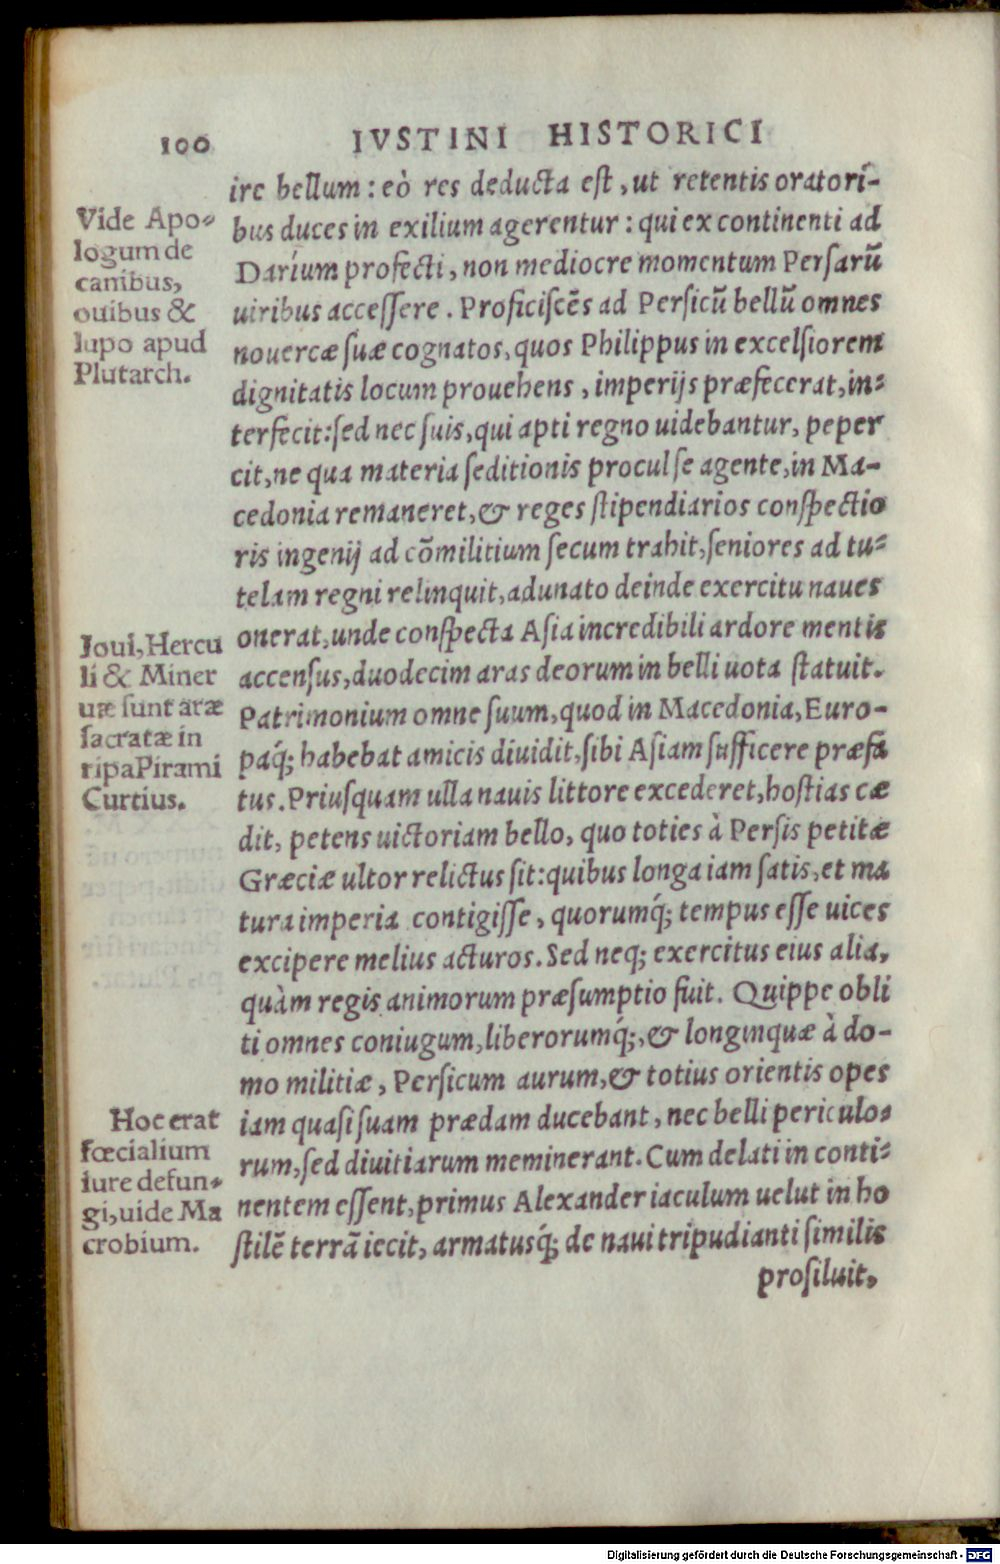 100
IVSTINI HISTORICI
ire bellum: eò res deducta est, ut retentis oratori-
bus duces in exilium agerentur: qui ex continenti ad
Darium profecti, non mediocre momentum Persarū
uiribus accessere. Proficiscēs ad Persicū bellū omnes
nouercæ suæ cognatos, quos Philippus in excelsiorem
dignitatis locum prouehens, imperijs præfecerat, in-
terfecit: sed nec suis, qui apti regno uidebantur, peper
cit, ne qua materia seditionis procul se agente, in Ma-
cedonia remaneret, & reges stipendiarios conspectio
ris ingenij ad cōmilitium secum trahit, seniores ad tu-
telam regni relinquit, adunato deinde exercitu naues
onerat, unde conspecta Asia incredibili ardore mentis
accensus, duodecim aras deorum in belli uota statuit.
Patrimonium omne suum, quod in Macedonia, Euro-
paq́; habebat amicis diuidit, sibi Asiam sufficere præfa
tus. Priusquam ulla nauis littore excederet, hostias cæ
dit, petens uictoriam bello, quo toties à Persis petitæ
Græciæ ultor relictus sit: quibus longa iam satis, et ma
tura imperia contigisse, quorumq́; tempus esse uices
excipere melius acturos. Sed neq; exercitus eius alia,
quàm regis animorum præsumptio fuit. Quippe obli
ti omnes coniugum, liberorumq́;, & longinquæ à do-
mo militiæ, Persicum aurum, & totius orientis opes
iam quasi suam prædam ducebant, nec belli periculo-
rum, sed diuitiarum meminerant. Cum delati in conti-
nentem essent, primus Alexander iaculum uelut in ho
stilē terrā iecit, armatusq́; de naui tripudianti similis
prosiluit,
Vide Apo-
logum de
canibus,
ouibus &
lupo apud
Plutarch.
Ioui, Hercu
li & Miner
uæ sunt aræ
sacratæ in
ripa Pirami
Curtius.
Hoc erat
fœcialium
iure defun-
gi, uide Ma
crobium.
Digitalisierung gefördert durch die Deutsche Forschungsgemeinschaft - DFG